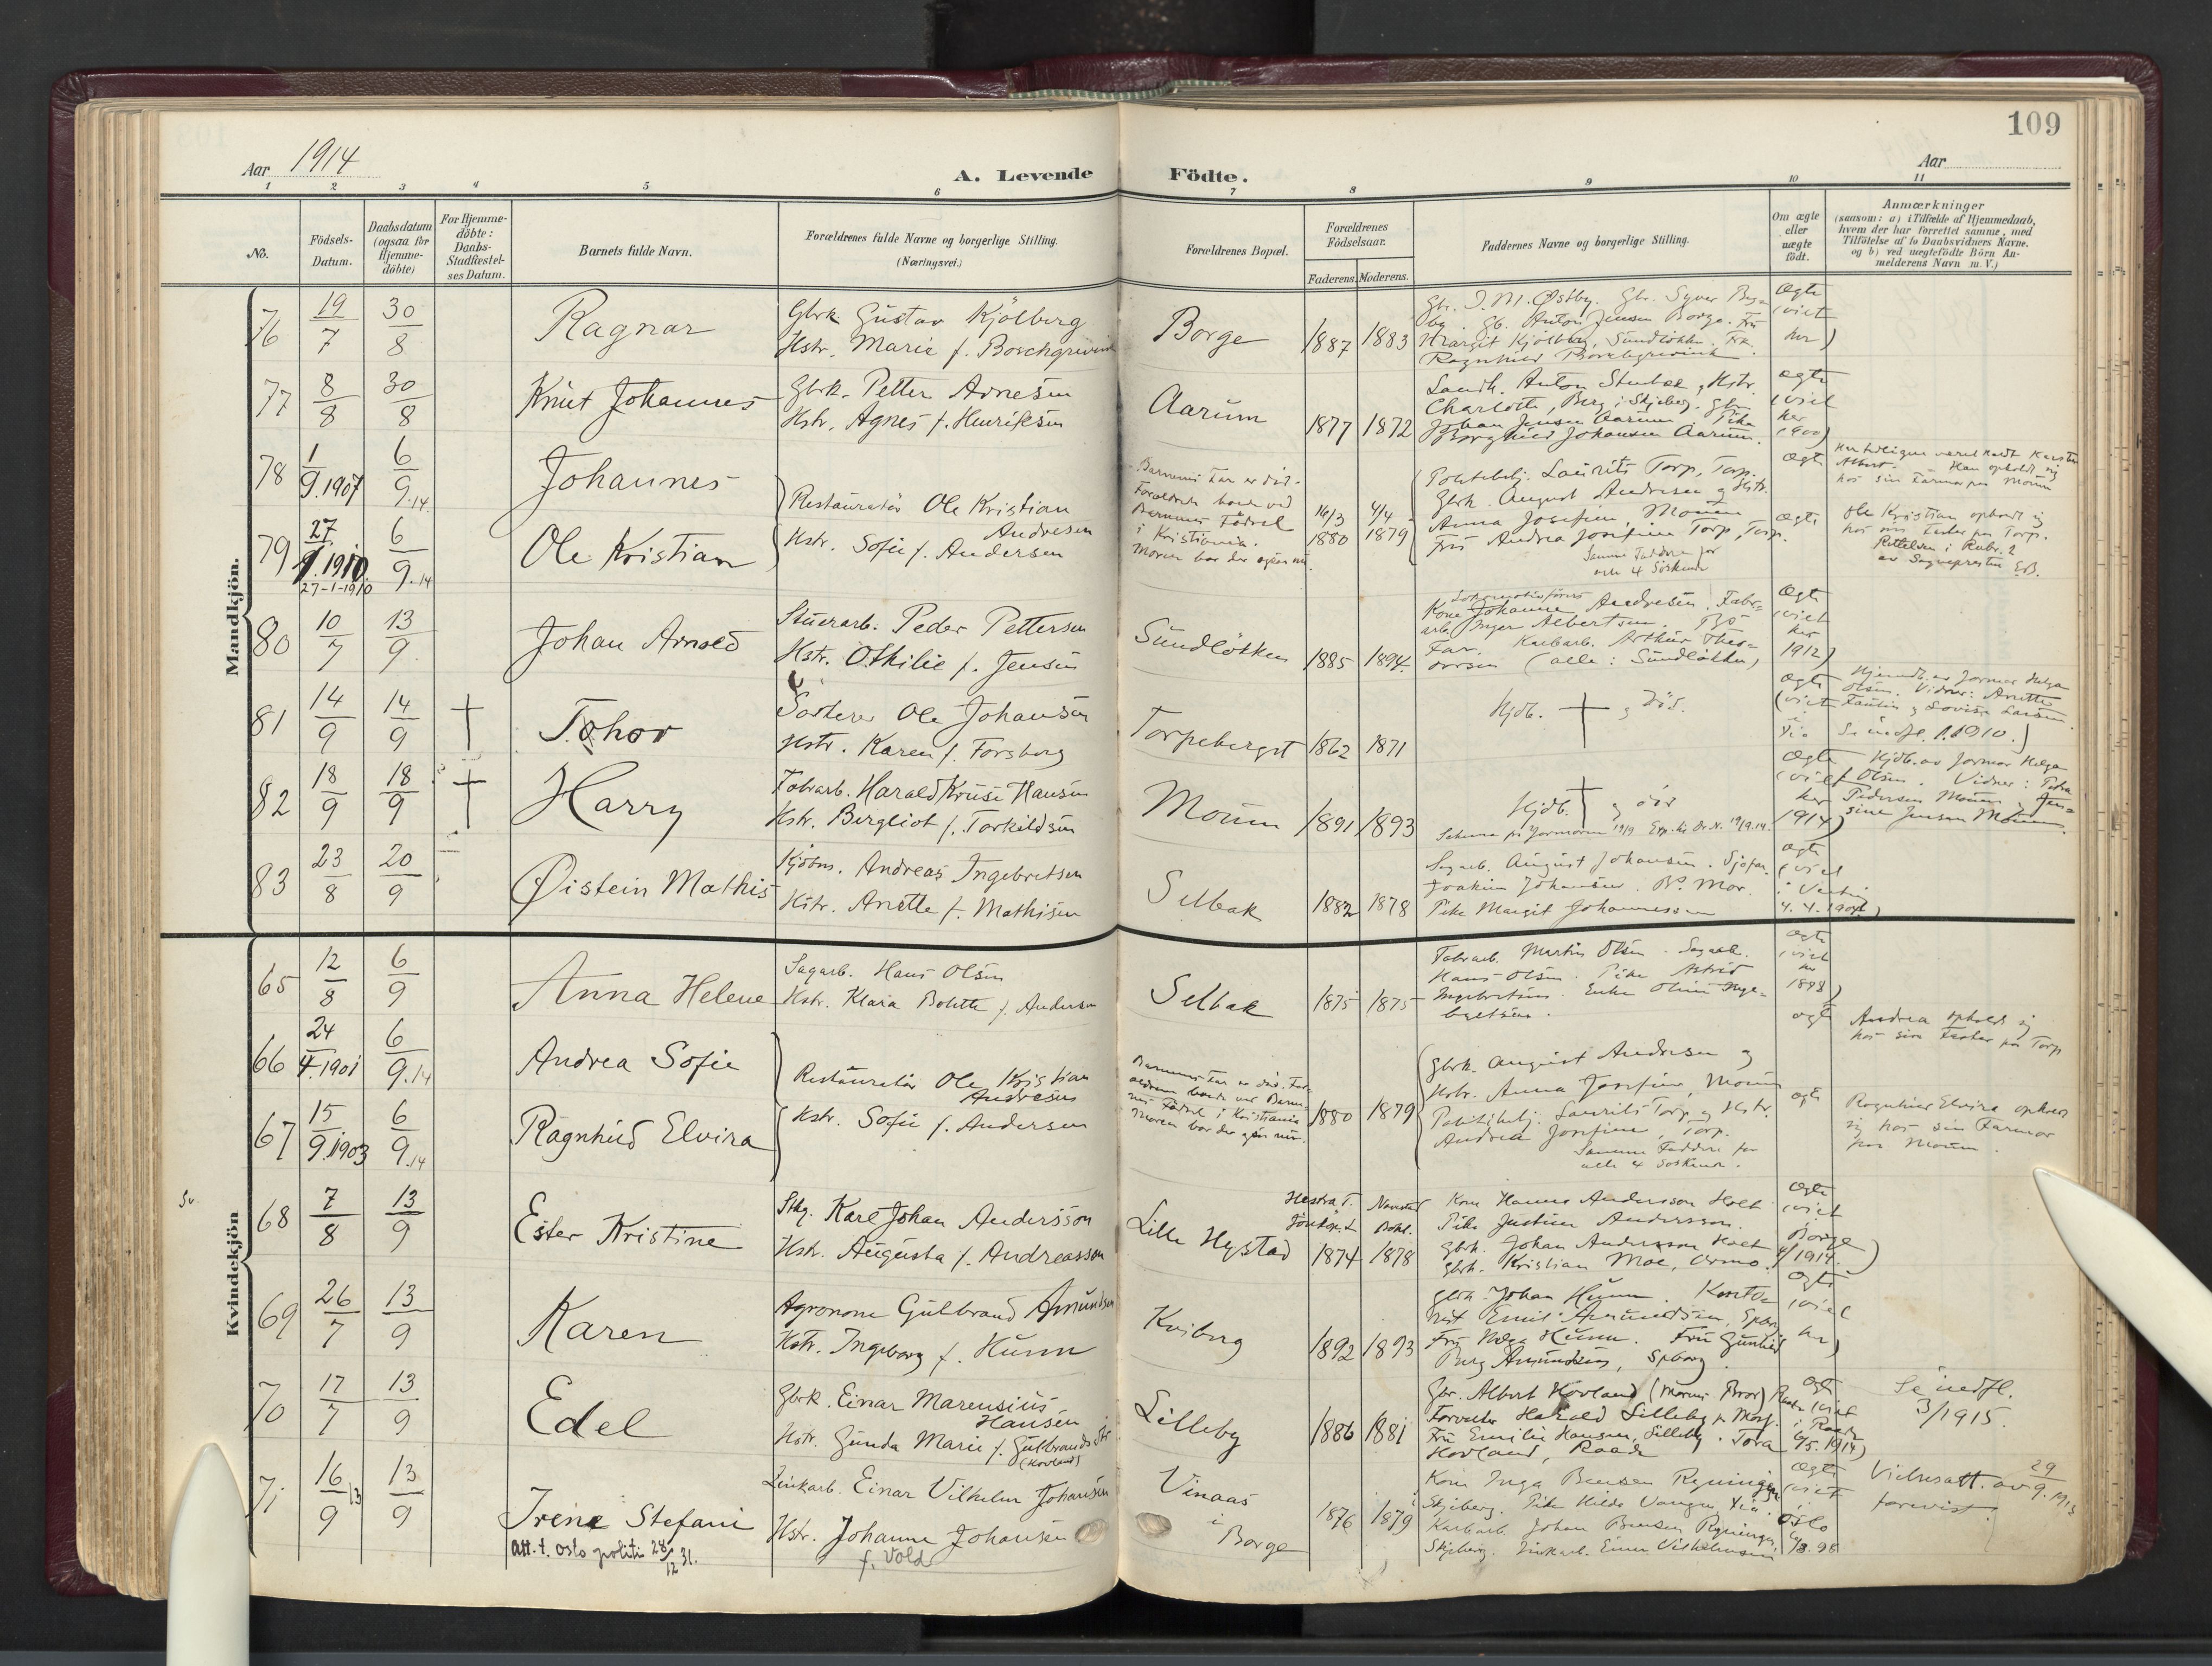 109
Aar 1914
A. Levende Födte.
Aar
1 2 3 4 5 6 7 8 9 10 11
No.
Födsels-
Datum.
Daabsdatum
(ogsaa for
Hjemme-
döbte)
For Hjemme-
döbte:
Daabs-
Stadfæstel-
ses Datum.
Barnets fulde Navn.
Forældrenes fulde Navne og borgerlige Stilling.
(Næringsvei.)
Forældrenes Bopæl.
Forældrenes
Födselsaar.
Faderens. Moderens.
Faddernes Navne og borgerlige Stilling.
Om ægte
eller
uægte
födt.
Anmærkninger
(saasom: a) i Tilfælde af Hjemmedaab,
hvem der har forrettet samme, med
Tilföielse af to Daabsvidners Navne.
og b) ved uægtefödte Börn An-
melderens Navn m. V.)
Mandkjön.
76 19/7 30/8 Ragnar
Gbrk. Gustav Kjölberg
Hstr. Marie f. Boschgrevink
Borge 1887 1883
Gbr. J. M. Østby. Gbr. Syver
Gb. Anton Jensen Borge. Fru
Margit Kjölberg, Sundlökka. Frk.
Ragnhild Boschgrevink
Ægte
(viet
her)
77 8/8 30/8 Knut Johannes
Gbrk. Petter Arnesen
Hstr. Agnes f. Henriksen
Aarum 1877 1872
Landh. Anton Stubal, Hstr.
Charlotte, Berg i Skjeberg. Gbr.
Johan Jensen Aarum. Pike
Borghild Johansen Aarum.
ægte
(viet
her
1900)
78 1/9.1907 6/9.14 Johannes
79 27/1.1910. 6/9.14 Ole Kristian
27-1-1910
Restauratör Ole Kristian
Andresen
Hstr. Sofie f. Andersen
Barnenes Far er död.
Forældrene boede ved
Barnenes Födsel
i Kristiania.
Moren bor der ogsaa nu.
16/3 4/4
1880 1879
Politibetj. Laurits Torp, Torp.
Gbrk. August Andresen og Hstr.
Anna Josefine, Moum
Fru Andrea Josefine Torp, Torp.
Samme Faddere for
alle 4 Söskend
Ægte
ægte
Albert. Han opholdt sig
hos sin Farmor paa Moum
Ole Kristian opholdt sig
hos sin Faster paa Torp.
Rettelsen i Rubr. 2
av Sognepresten EB.
80 10/7 13/9 Johan Arnold
Stuerarb. Peder Pettersen
Hstr. Othilie f. Jensen
Sundlökken 1885 1894.
Lokomotivförers
Kone Johanne Andresen. Fabr=
arb. Inger Albertsen.
Far. Karbarb. Arthur Theo=
dorsen (alle: Sundlökken)
Ægte
(viet
her
1912)
81 14/9 14/9 † Thor
Sorterer Ole Johansen
Hstr. Karen f. Forsberg
Torpeberget 1862 1871
Hjdb. † og död.
Ægte
(viet
i
Kr.a
Hjemdb. av Jormor Helga
Olsen. Vidner: Anette
Fautin og Lovise Larsen.
Se indfl. 1.1910.)
82 18/9 18/9 † Harry
Fabrarb. Harald Kruse Hansen
Hstr. Bergliot f. Torkildsen
Moum 1891 1893
Hjdb. † og död
Ægte
(viet
her
1914)
Hjdb. av Jormor Helga
Olsen. Vidner: Petra
Pedersen Moum og Jen=
sine Jensen Moum.
83 23/8 20/9 Øistein Mathis
Kjöbm. Andreas Ingebretsen
Hstr. Anette f. Mathisen
Selbak 1882 1878
Sagarb. August Johansen. Sjöfor.
Joakim Johansen. B's Mor.
Pike Margit Johannessen
ægte
(viet
Kvindekjön
65 12/8 6/9 Anna Helene
Sagarb. Hans Olsen
Hstr. Klara Bolette f. Andersen
Selbak 1875 1875
Fabrarb. Martin Olsen. Sagarb.
Hans Olsen. Pike Astrid
Ingebretsen. Enke Oline Inge=
bretsen.
Ægte
(viet
her
1898)
66 24/4.1901 6/9.14 Andrea Sofie
67 15/9.1903 6/9.14 Ragnhild Elvira
Restauratör Ole Kristian
Andresen
Hstr. Sofie f. Andersen
Barnenes Far er död. For-
ældrene boede ved Barne-
nes Födsel i Kristiania
Moren bor der ogsaa nu.
1880 1879
Gbrk. August Andresen og
Hstr. Anna Josefine, Moum
Politibetj. Laurits Torp og Hstr.
Andrea Josefine, Torp.
Samme Faddere for
alle 4 Söskend.
ægte
ægte
Andrea opholdt sig
hos sin Faster paa Torp
Ragnhild Elvira opholdt
sig hos sin Farmor
paa Moum.
Sv.
68 7/8 13/9 Ester Kristine
Sthg. Karl Johan Andersson
Hstr. Augusta f. Andreasson
Lille Hystad
1874 1878
Kone Hanna Andersson Holt
Pike Justine Andersson.
Gbrk. Johan Andersson Holt
Gbrk. Kristian Moe, Ormo.
Ægte
(viet
i
Borge
1914.)
69 26/7 13/9 Karen
Agronom Gulbrand Amundsen
Hstr. Ingeborg f. Hunn
Kviberg 1892 1893
Gbrk. Johan Hunn. Kontor
ist Emil Amundsen, Spbor
Fru Helga Hunn. Fru Gunhild
Berg Amundsen, Spborg.
Ægte
(viet
her)
70 17/7 13/9 Edel
Gbrk. Einar Marensius
Hansen
Hstr. Gunda Marie f. Gulbrandsdtr
(Hovland)
Lilleby 1886 1881
Gbr. Albert Hovland (Morens Bror)
Forvalter Harald Lilleby p. Moss.
Fru Emilie Hansen, Lilleby. Tora
Hovland, Raade
Ægte
(viet
i Raade
6/5.1914)
Se indfl.
3/1915.
71 16/9 13 13/9 Irene Stefani
Att. t. Oslo politi 28/12 31.
Linkarb. Einar Vilhelm Johansen
Hstr. Johanne Johansen
f. Vold
Vinaas
i
Borge
1876 1879
Kone Inga Bensen Rynningen
Skjeberg. Pike Hilda Vangen, Kr.a
Karbarb. Johan Bensen Rynningen,
Skjeberg. Linkarb. Einar Vilhelmsen
Ægte
(viet
i
Oslo
Vielsesatt. av 29/9.1913
forevist.